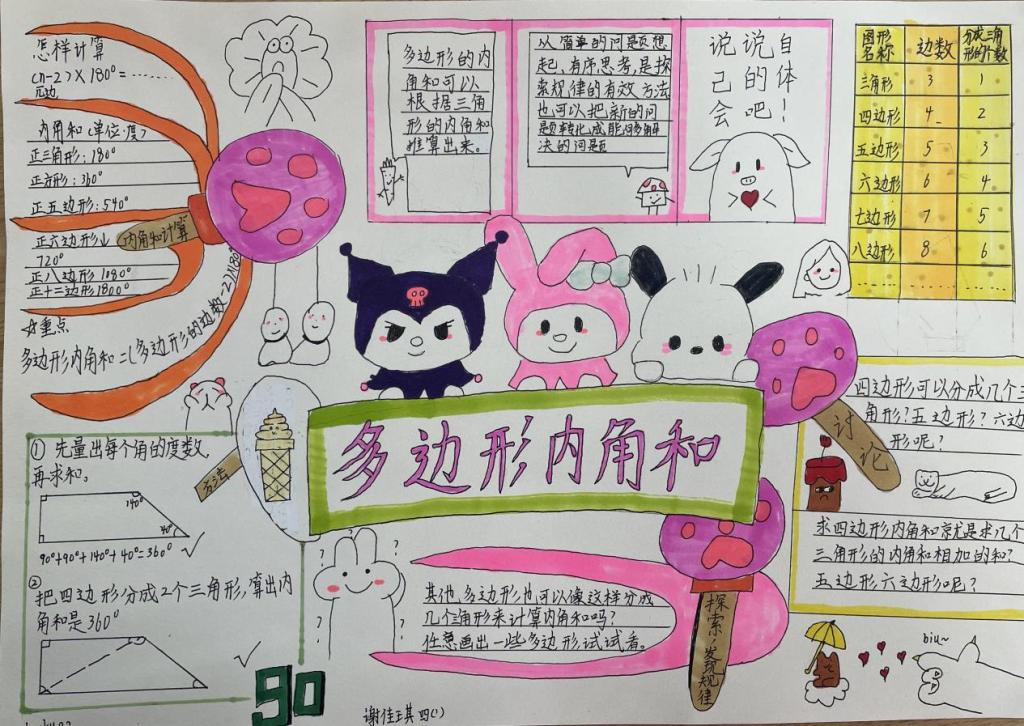 怎样计算
(n-2)×180°=……
n边
内角和(单位:度)
正三角形:180°
正方形:360°
正五边形:540°
正六边形↓
720°
正八边形1080°
正十二边形1800°
内角和计算
☆重点
多边形内角和=(多边形的边数-2)×180°
多边形的内
角和可以
根据三角
形的内角和
推算出来。
从简单的问题想
起,有序思考,是探
索规律的有效方法
也可以把新的问
题转化成能够解
决的问题
说说自
己的体
会吧!
图形名称 边数 分成三角形的个数
三角形 3 1
四边形 4 2
五边形 5 3
六边形 6 4
七边形 7 5
八边形 8 6
…… …… ……
多边形内角和
①先量出每个角的度数,
再求和。
140°
40°
90°+90°+140°+40°=360° ✓
②
把四边形分成2个三角形,算出内
角和是360°
✓
方法
讨论
四边形可以分成几个三
角形?五边形?六边
形呢?
求四边形内角和就是求几个
三角形的内角和相加的和?
五边形.六边形呢?
? ? ? ?
其他多边形也可以像这样分成
几个角形来计算内角和吗?
任意画出一些多边形,试试看。
探索,发现规律
biu~
90
谢佳琪 四(1)